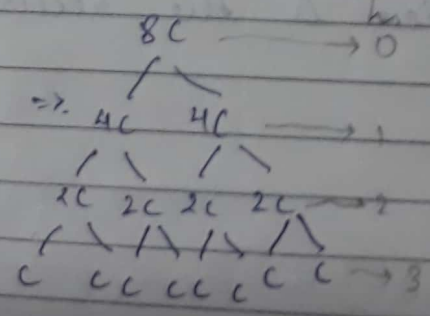 8C → 0
=> 4C 4C → 1
2C 2C 2C 2C → 2
C C C C C C C C → 3